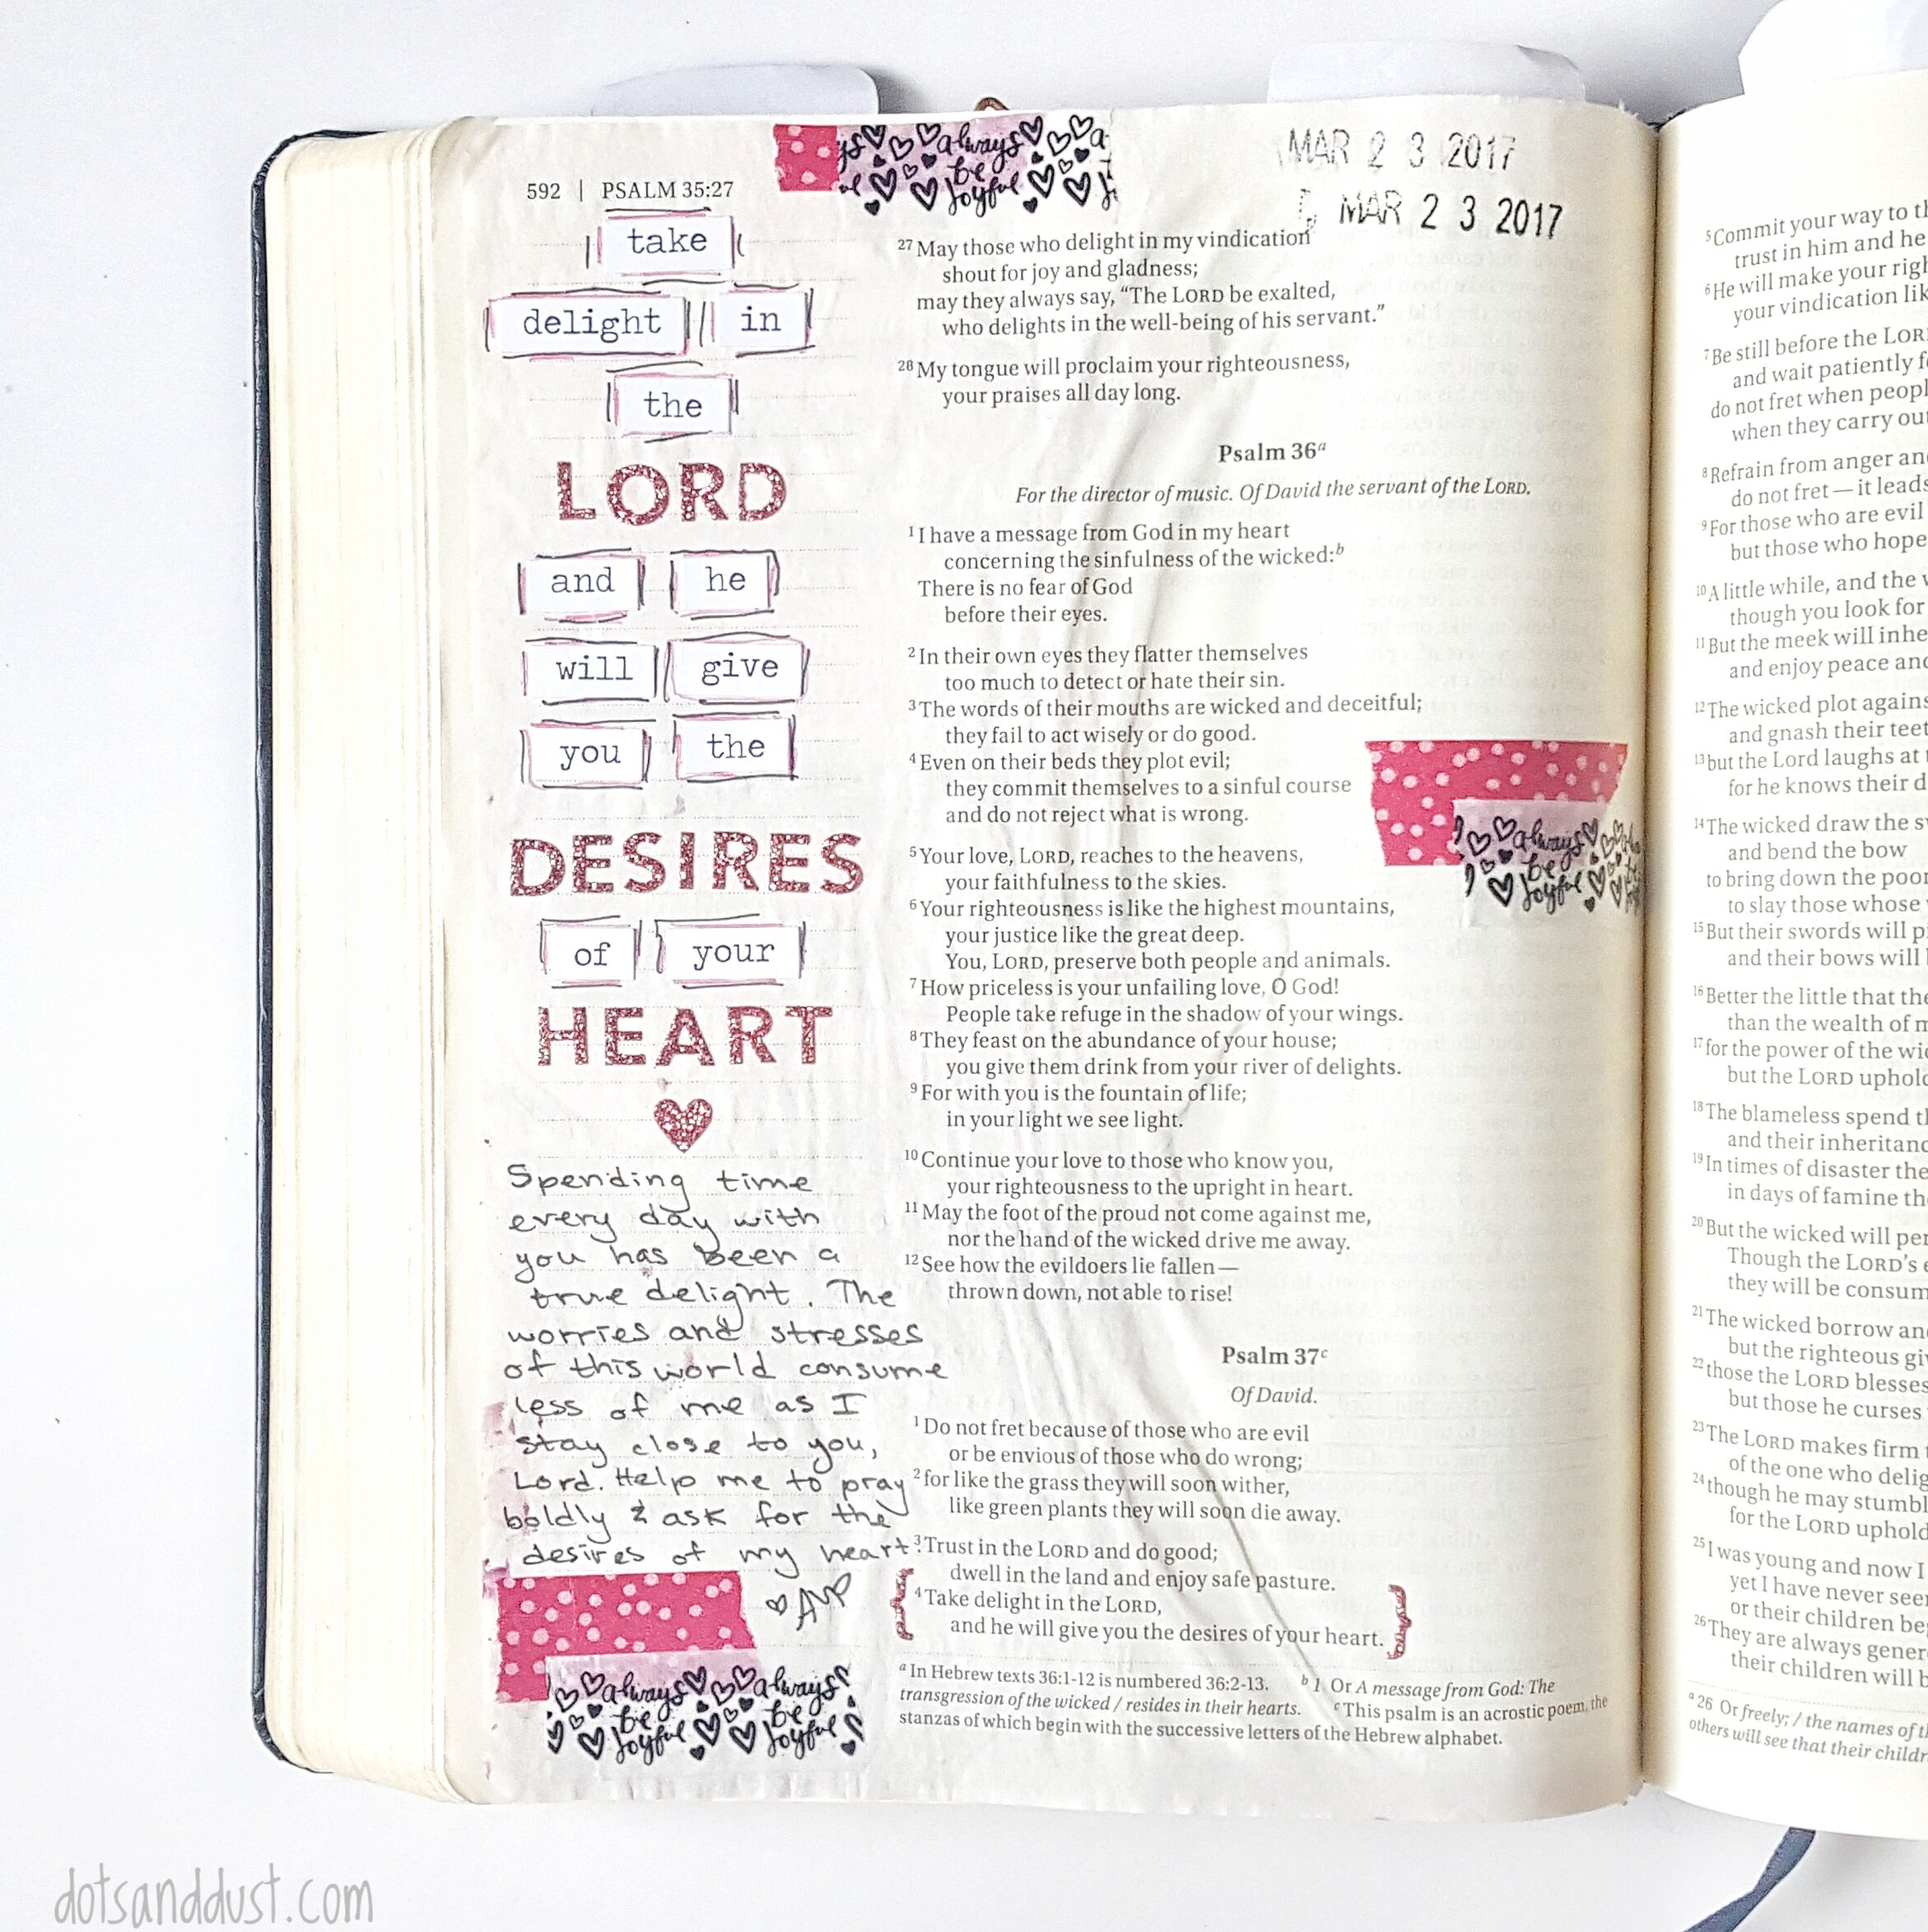 592 | PSALM 35:27
always be joyful
MAR 2 3 2017
MAR 2 3 2017
take
delight in
the
LORD
and he
will give
you the
DESIRES
of your
HEART
Spending time
every day with
you has been a
true delight. The
worries and stresses
of this world consume
less of me as I
stay close to you,
Lord. Help me to pray
boldly & ask for the
desires of my heart.
always always
be be
joyful joyful
27 May those who delight in my vindication
shout for joy and gladness;
may they always say, “The LORD be exalted,
who delights in the well-being of his servant.”
28 My tongue will proclaim your righteousness,
your praises all day long.
Psalm 36a
For the director of music. Of David the servant of the LORD.
1 I have a message from God in my heart
concerning the sinfulness of the wicked:b
There is no fear of God
before their eyes.
2 In their own eyes they flatter themselves
too much to detect or hate their sin.
3 The words of their mouths are wicked and deceitful;
they fail to act wisely or do good.
4 Even on their beds they plot evil;
they commit themselves to a sinful course
and do not reject what is wrong.
5 Your love, LORD, reaches to the heavens,
your faithfulness to the skies.
6 Your righteousness is like the highest mountains,
your justice like the great deep.
You, LORD, preserve both people and animals.
7 How priceless is your unfailing love, O God!
People take refuge in the shadow of your wings.
8 They feast on the abundance of your house;
you give them drink from your river of delights.
9 For with you is the fountain of life;
in your light we see light.
10 Continue your love to those who know you,
your righteousness to the upright in heart.
11 May the foot of the proud not come against me,
nor the hand of the wicked drive me away.
12 See how the evildoers lie fallen—
thrown down, not able to rise!
always
be
joyful
Psalm 37c
Of David.
1 Do not fret because of those who are evil
or be envious of those who do wrong;
2 for like the grass they will soon wither,
like green plants they will soon die away.
3 Trust in the LORD and do good;
dwell in the land and enjoy safe pasture.
{ 4 Take delight in the LORD,
and he will give you the desires of your heart. }
a In Hebrew texts 36:1-12 is numbered 36:2-13. b 1 Or A message from God: The
transgression of the wicked / resides in their hearts. c This psalm is an acrostic poem, the
stanzas of which begin with the successive letters of the Hebrew alphabet.
5 Commit your way to
trust in him and he
6 He will make your
your vindication
7 Be still before the
and wait patiently
do not fret when
when they carry
8 Refrain from anger
do not fret — it leads
9 For those who are evil
but those who hope
10 A little while, and the
though you look for
11 But the meek will
and enjoy peace
12 The wicked plot
and gnash their
13 but the Lord laughs at
for he knows their
14 The wicked draw the
and bend the bow
to bring down the
to slay those whose
15 But their swords will
and their bows will
16 Better the little that
than the wealth of
17 for the power of the
but the LORD
18 The blameless spend
and their
19 In times of disaster
in days of famine
20 But the wicked will
Though the LORD’s
they will be
21 The wicked borrow
but the righteous
22 those the LORD
but those he curses
23 The LORD makes firm
of the one who
24 though he may
for the LORD
25 I was young and now I
yet I have never
or their children
26 They are always
their children will
a 26 Or freely; / the names of
others will see that their
dotsanddust.com